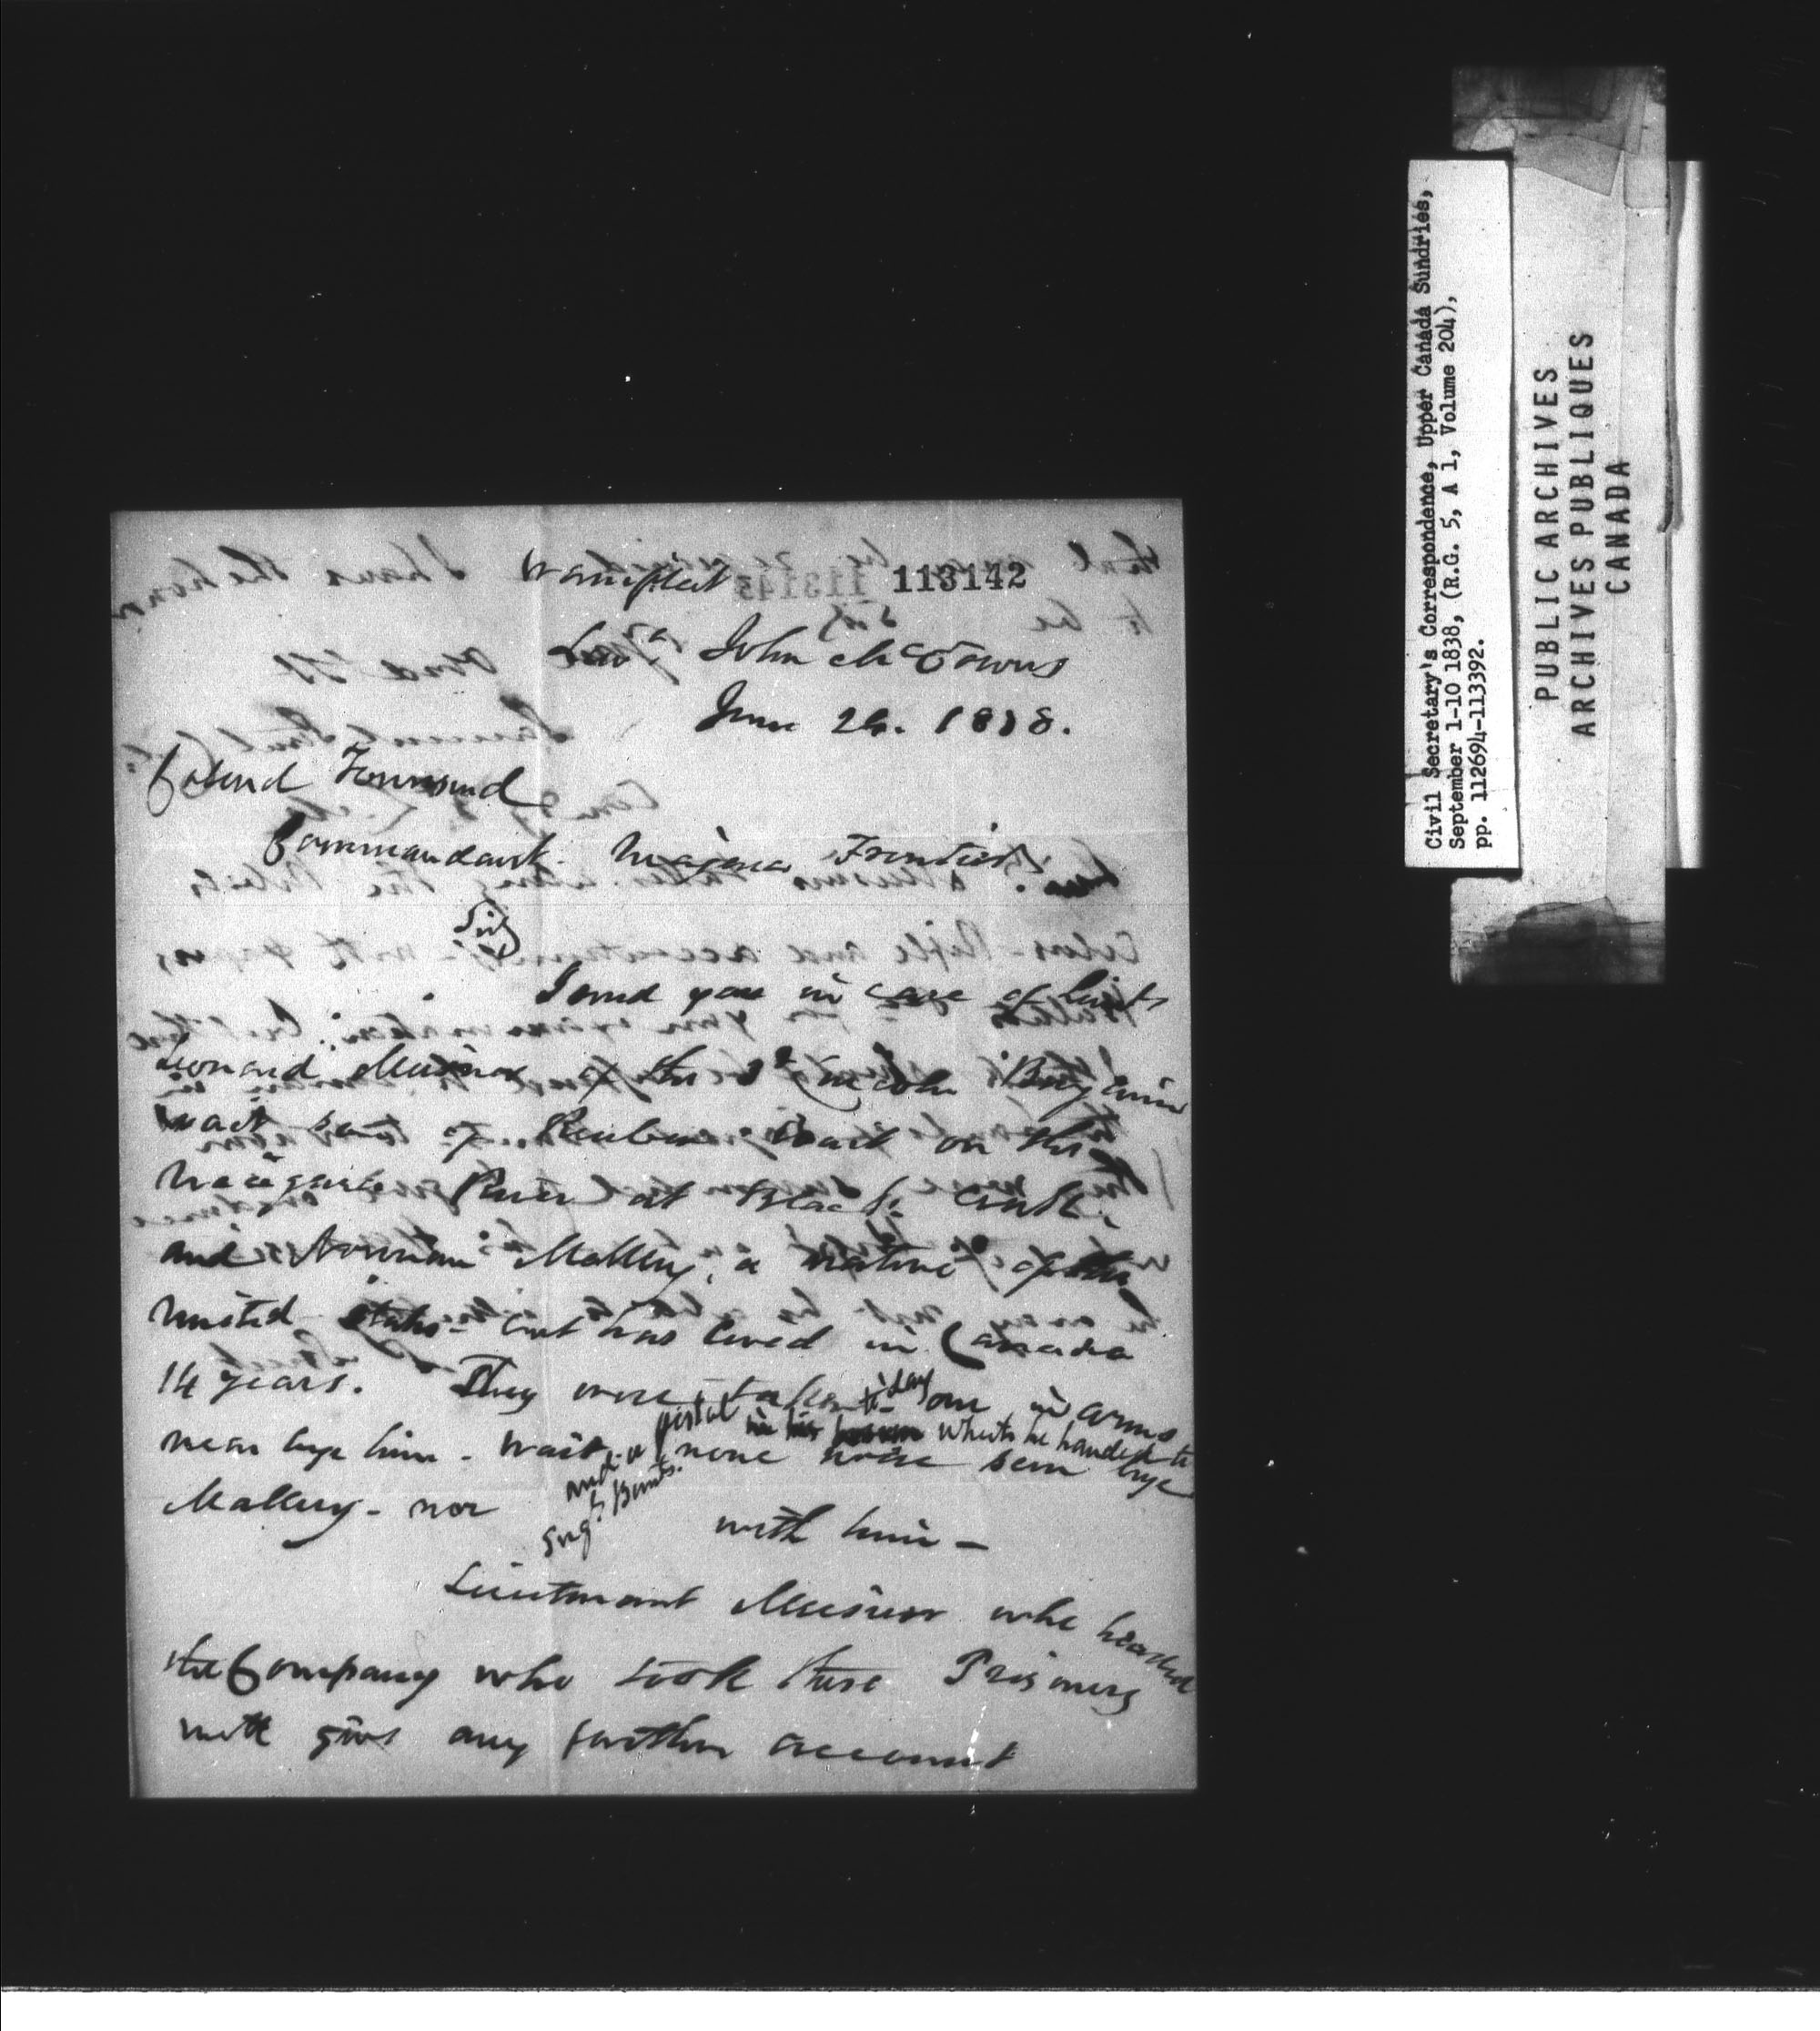 113142
John McGowns
June 24. 1838.
Colonel Townsend
Commandant. Niagara Frontier
Sir,
I send you in care of Lieut
Leonard Misener of the 3d Lincoln Benjamin
Wait son of Reuben Wait on the
Niagara River at Black Creek
and Norman Mallery, a native of the
United States - but has lived in Canada
14 years. They were taken to day one in arms
near bye him - Wait. none were seen bye
and a pistol in his bosom which he handed to
Sergt. Bunts.
Mallery - nor with him -
Lieutenant Misener who headed
the Company who took these Prisoners
will give any further account
Civil Secretary's Correspondence, Upper Canada Sundries,
September 1-10 1838, (R.G. 5, A 1, Volume 204),
pp. 112694-113392.
PUBLIC ARCHIVES
ARCHIVES PUBLIQUES
CANADA